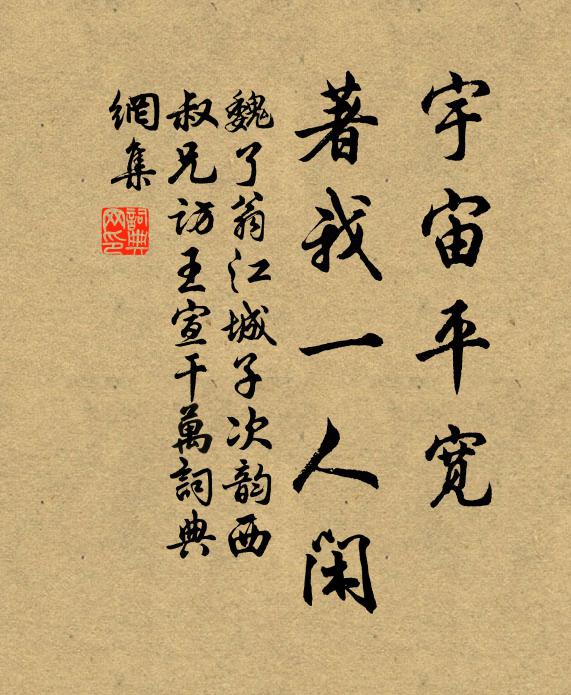 宇宙平宽
著我一人闲
魏了翁江城子次韵西
叔兄访王宣干萬詞典
網集
詞典
网印